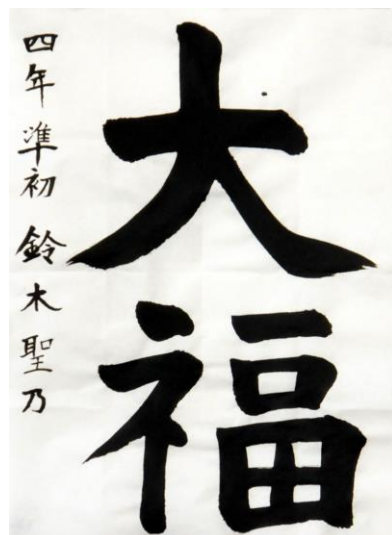 大福
四年 準初 鈴木聖乃